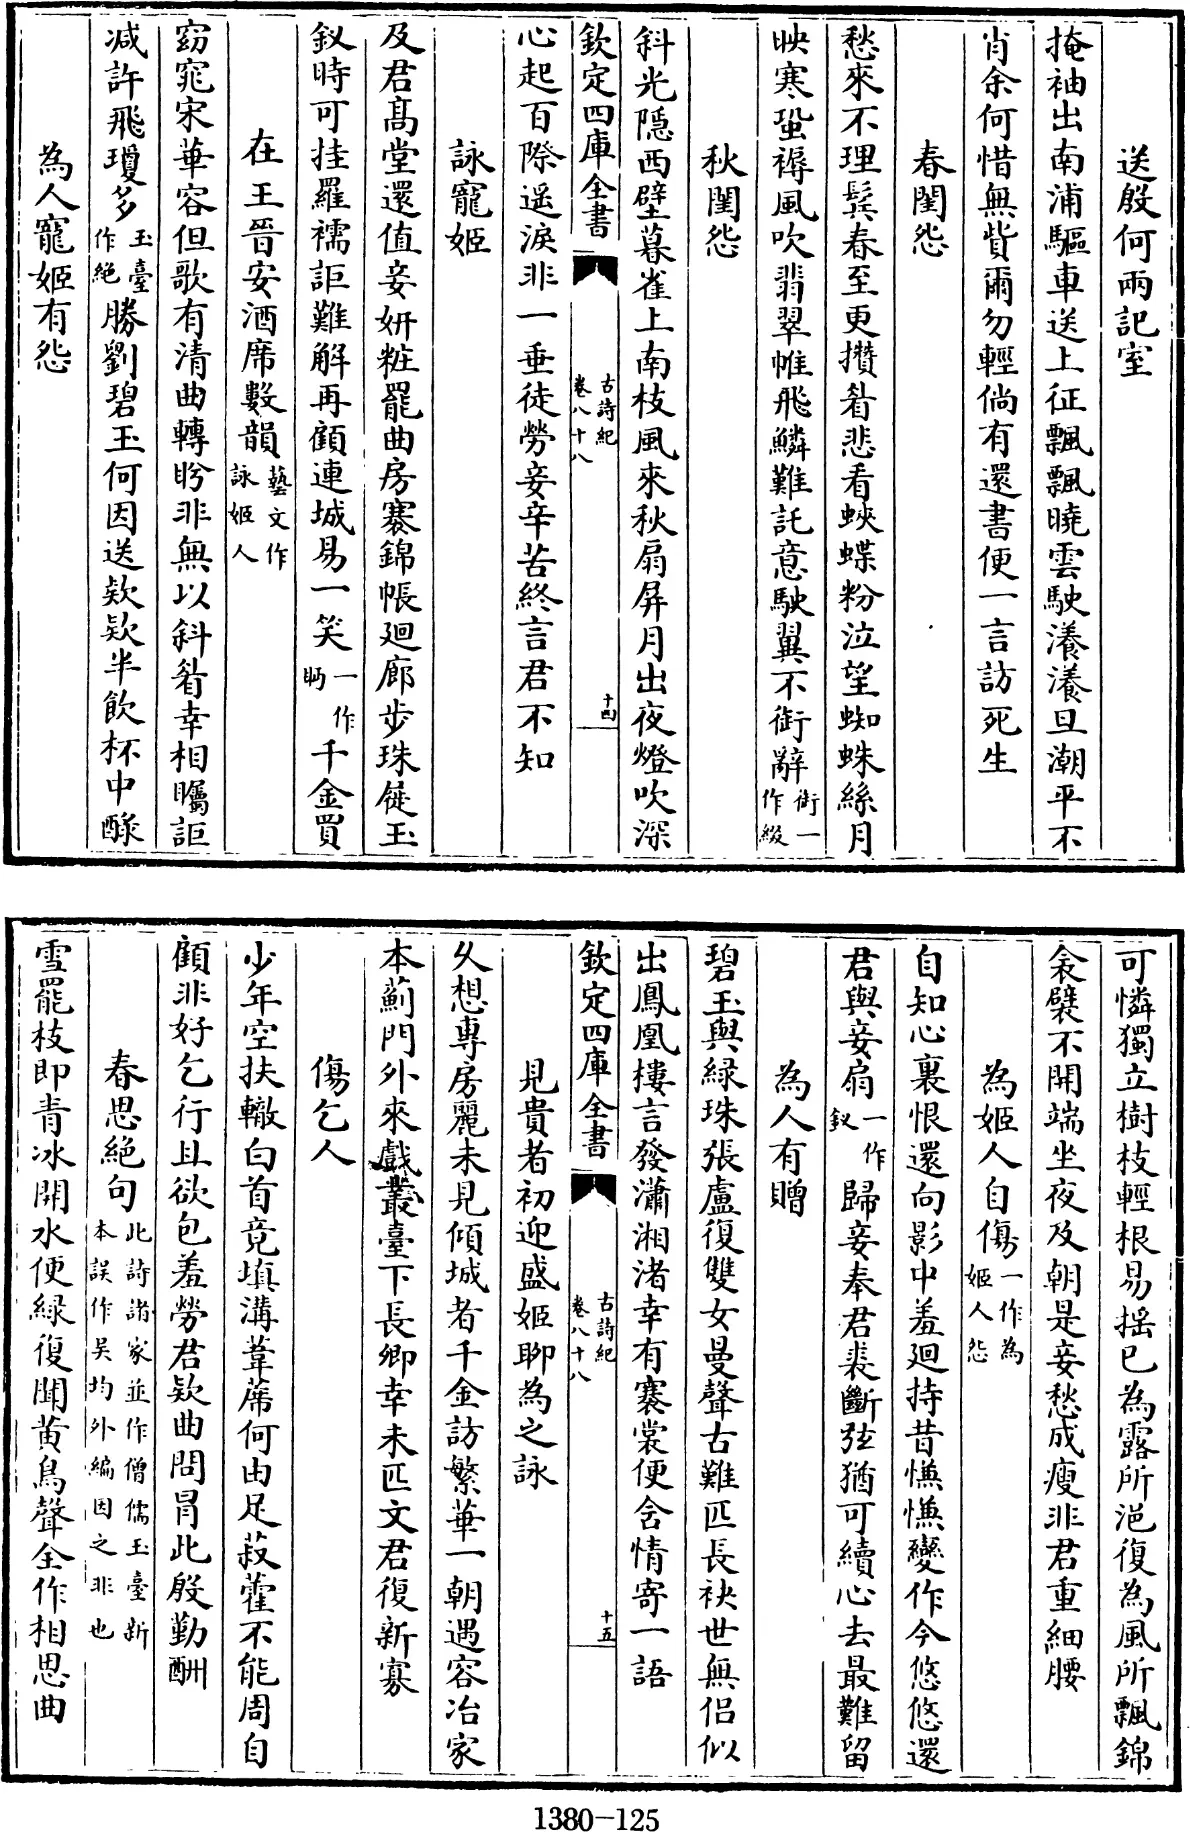 送殷何兩記室
掩袖出南浦驅車送上征飄飄曉雲駛瀁瀁旦潮平不
肯余何惜無貲爾勿輕倘有還書便一言訪死生
春閨怨
愁來不理鬂春至更攢眉悲看蛺蝶粉泣望蜘蛛絲月
映寒蛩褥風吹翡翠帷飛鱗難託意駛翼不銜辭銜一作綴
秋閨怨
斜光隠西壁暮雀上南枝風來秋扇屏月出夜燈吹深
欽定四庫全書 古詩紀卷八十八 十四
心起百際遥淚非一垂徒勞妾辛苦終言君不知
詠寵姬
及君髙堂還值妾妍粧罷曲房褰錦帳廻廊步珠屣玉
釵時可挂羅襦詎難解再顧連城易一笑一作眄千金買
在王晉安酒席數韻藝文作詠姬人
窈窕宋華容但歌有清曲轉盻非無以斜眉幸相矚詎
减許飛瓊多玉臺作絶勝劉碧玉何因送欵欵半飲杯中醁
為人寵姬有怨
可憐獨立樹枝輕根易揺已為露所浥復為風所飄錦
衾襞不開端坐夜及朝是妾愁成瘦非君重細腰
為姬人自傷一作為姬人怨
自知心裏恨還向影中羞廻持昔慊慊變作今悠悠還
君與妾扇一作釵歸妾奉君裘斷弦猶可續心去最難留
為人有贈
碧玉與緑珠張盧復雙女曼聲古難匹長袂世無侣似
出鳳凰樓言發瀟湘渚幸有褰裳便含情寄一語
欽定四庫全書 古詩紀卷八十八 十五
見貴者初迎盛姬聊為之詠
久想專房麗未見傾城者千金訪繁華一朝遇容冶家
本薊門外來戲叢臺下長卿幸未匹文君復新寡
傷乞人
少年空扶轍白首竟填溝葦蓆何由足菽藿不能周自
顧非好乞行且欲包羞勞君欵曲問冐此殷勤酬
春思絶句此詩諸家並作僧儒玉臺新本誤作吴均外編因之非也
雪罷枝即青冰開水便緑復聞黄鳥聲全作相思曲
1380-125